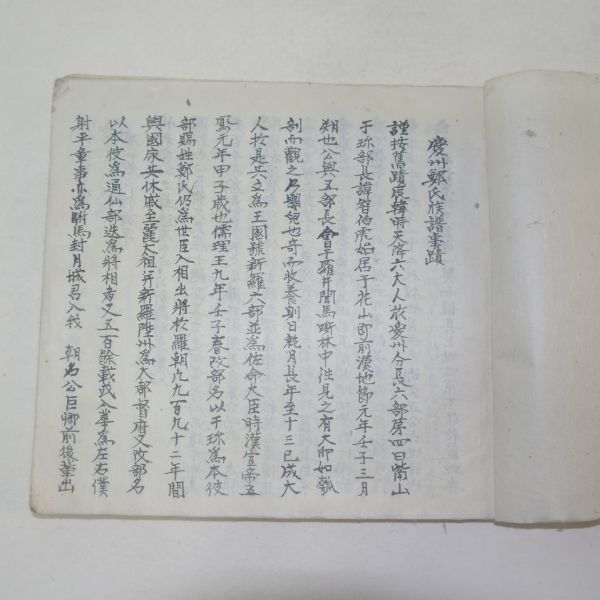 慶州鄭氏族譜事蹟
謹按舊蹟辰韓時天降六大人於慶州分長六部第四曰觜山
于珍部長諱智伯虎始居于花山即前漢地節元年壬子三月
朔也公與五部長會于蘿井聞馬嘶林中往見之有大卵如瓠
剖而觀之乃嬰兒也奇而收養剋日就月長年至十三已成大
人於是共立爲王國號新羅六部並爲佐命大臣時漢宣帝五
鳳元年甲子歲也儒理王九年壬子春改部名以于珍爲本彼
部賜姓鄭氏仍爲世臣入相出將於羅朝凡九百九十二年間
與國家共休戚至麗太祖幷新羅陞州爲大都督府又改部名
以本彼爲通仙部迭爲將相者又五百餘載或入拳爲左右僕
射平章事亦爲駙馬封月城君入我 朝名公巨卿前後輩出